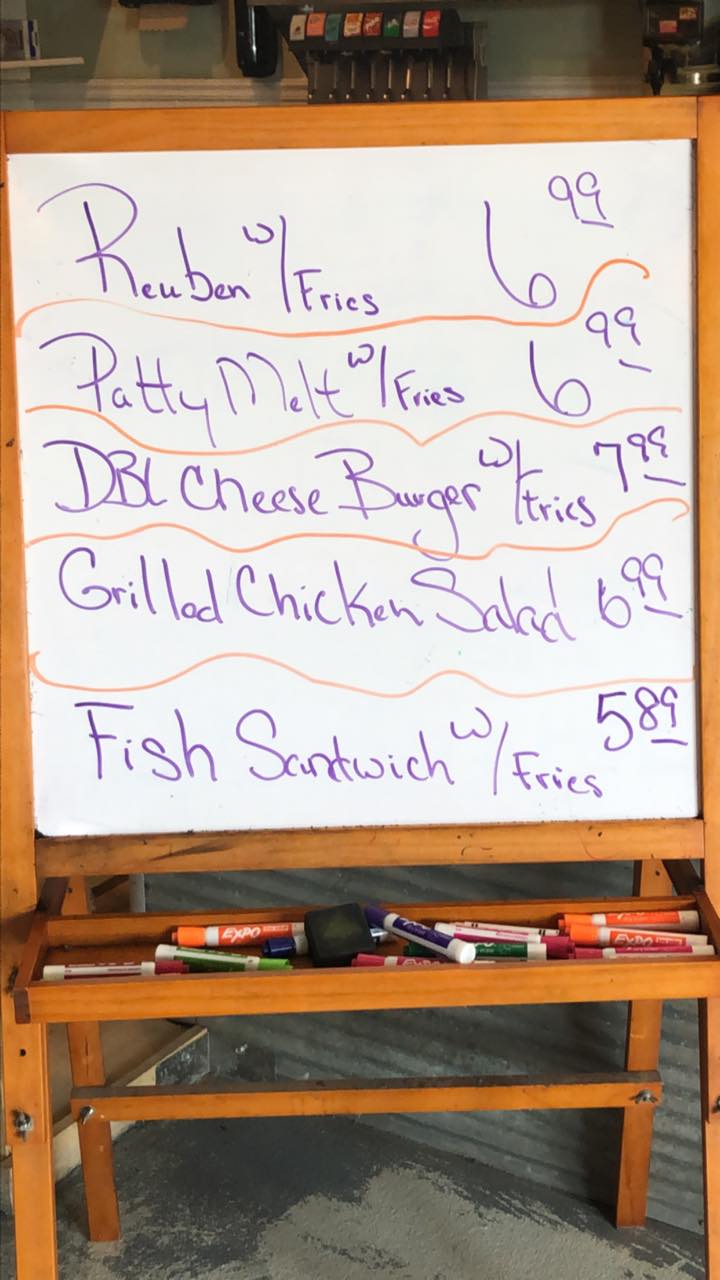 Reuben w/Fries 6 99
Patty Melt w/Fries 6 99
DBL Cheese Burger w/fries 7 99
Grilled Chicken Salad 6 99
Fish Sandwich w/Fries 5 89
EXPO
EXPO